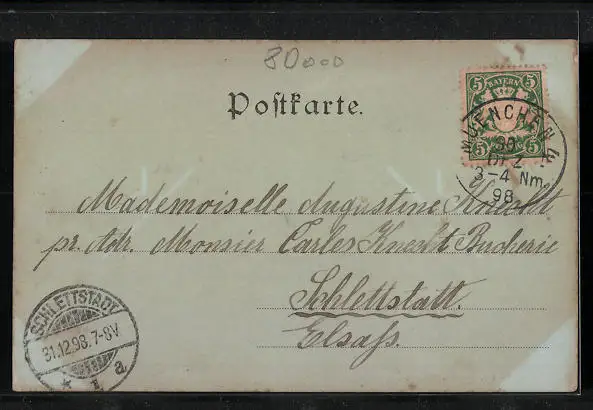 80000
Postkarte.
5 BAYERN 5
5 5
MUENCHEN 4.
30
DEZ
3-4 Nm.
98
Mademoiselle Augustine Knecht
pr. Adr. Monsier Carles Knecht Bucherie
Schlettstatt.
Elsaß.
SCHLETTSTADT
31.12.98.7-8V
* 1 a